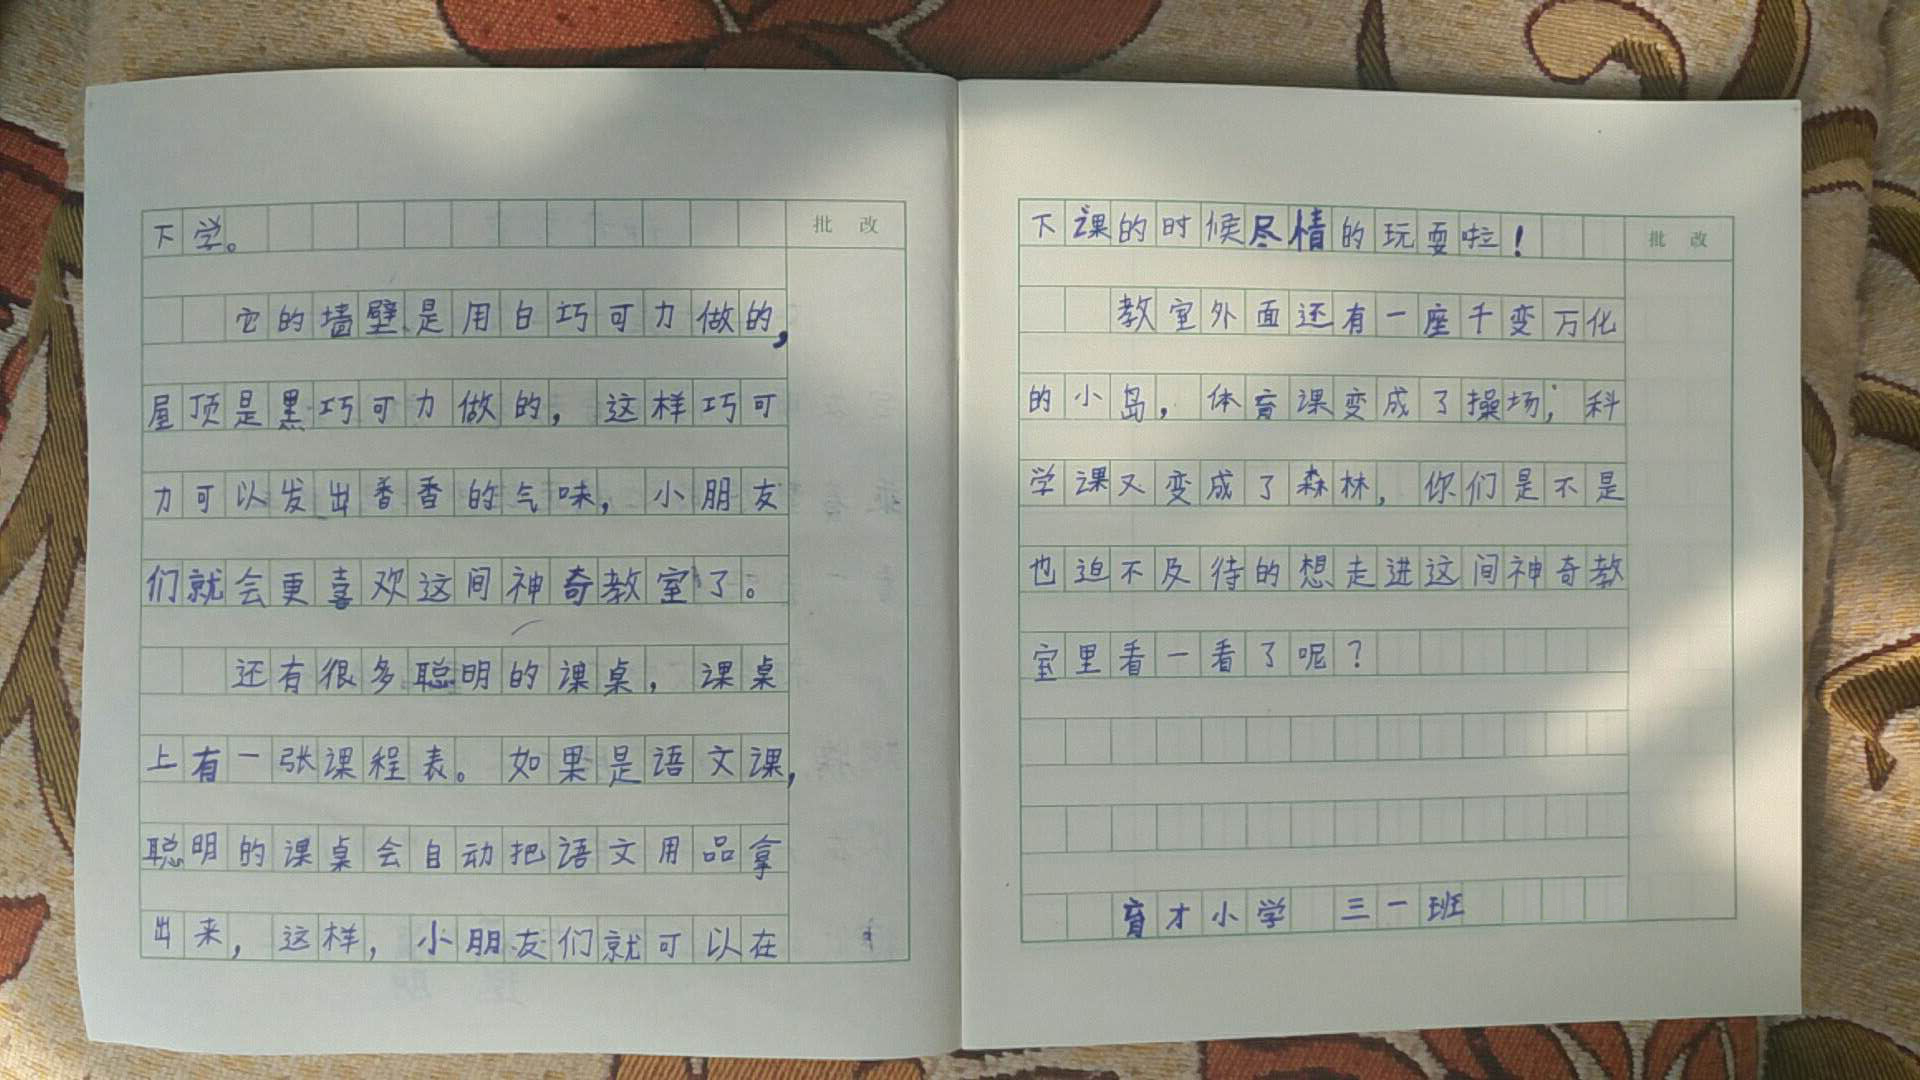 下学。
批 改
它的墙壁是用白巧可力做的，
屋顶是黑巧可力做的，这样巧可
力可以发出香香的气味，小朋友
们就会更喜欢这间神奇教室了。
还有很多聪明的课桌，课桌
上有一张课程表。如果是语文课，
聪明的课桌会自动把语文用品拿
出来，这样，小朋友们就可以在
下课的时候尽情的玩耍啦！
批 改
教室外面还有一座千变万化
的小岛，体育课变成了操场；科
学课又变成了森林，你们是不是
也迫不及待的想走进这间神奇教
室里看一看了呢？
育才小学 三一班